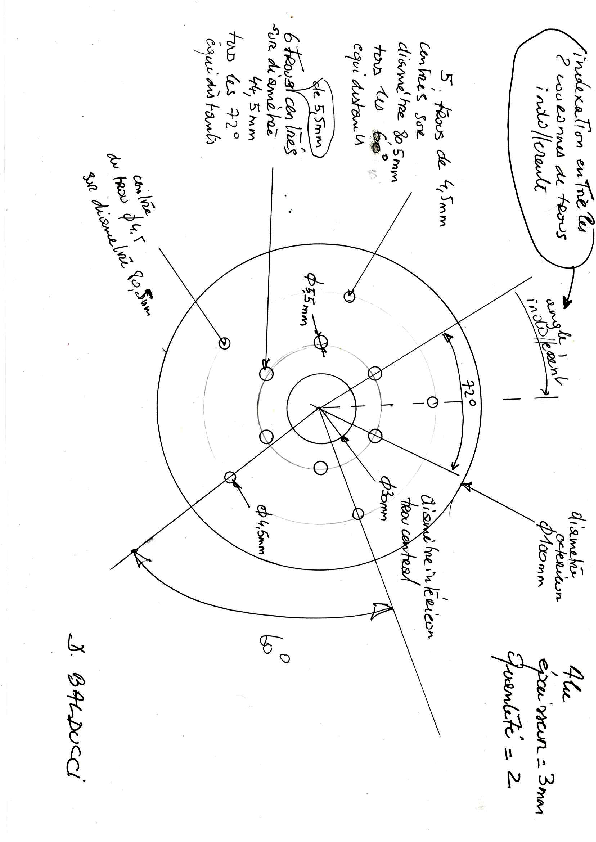 indexation entre les
2 couronnes de trous
indifférente
angle
indifférent
5 trous de 4,5mm
centrés sur
diamètre 80,5mm
tous les 60°
équidistants
de 5,5mm
6 trous centrés
sur diamètre
44,5mm
tous les 72°
équidistants
centre
du trou φ4,5
sur diamètre 80,5mm
φ5,5mm
72°
φ30mm
diamètre intérieur
trou central
φ4,5mm
diamètre
exterieur
φ100mm
60°
Alu
épaisseur = 3mm
Quantité = 2
D. BALDUCCI